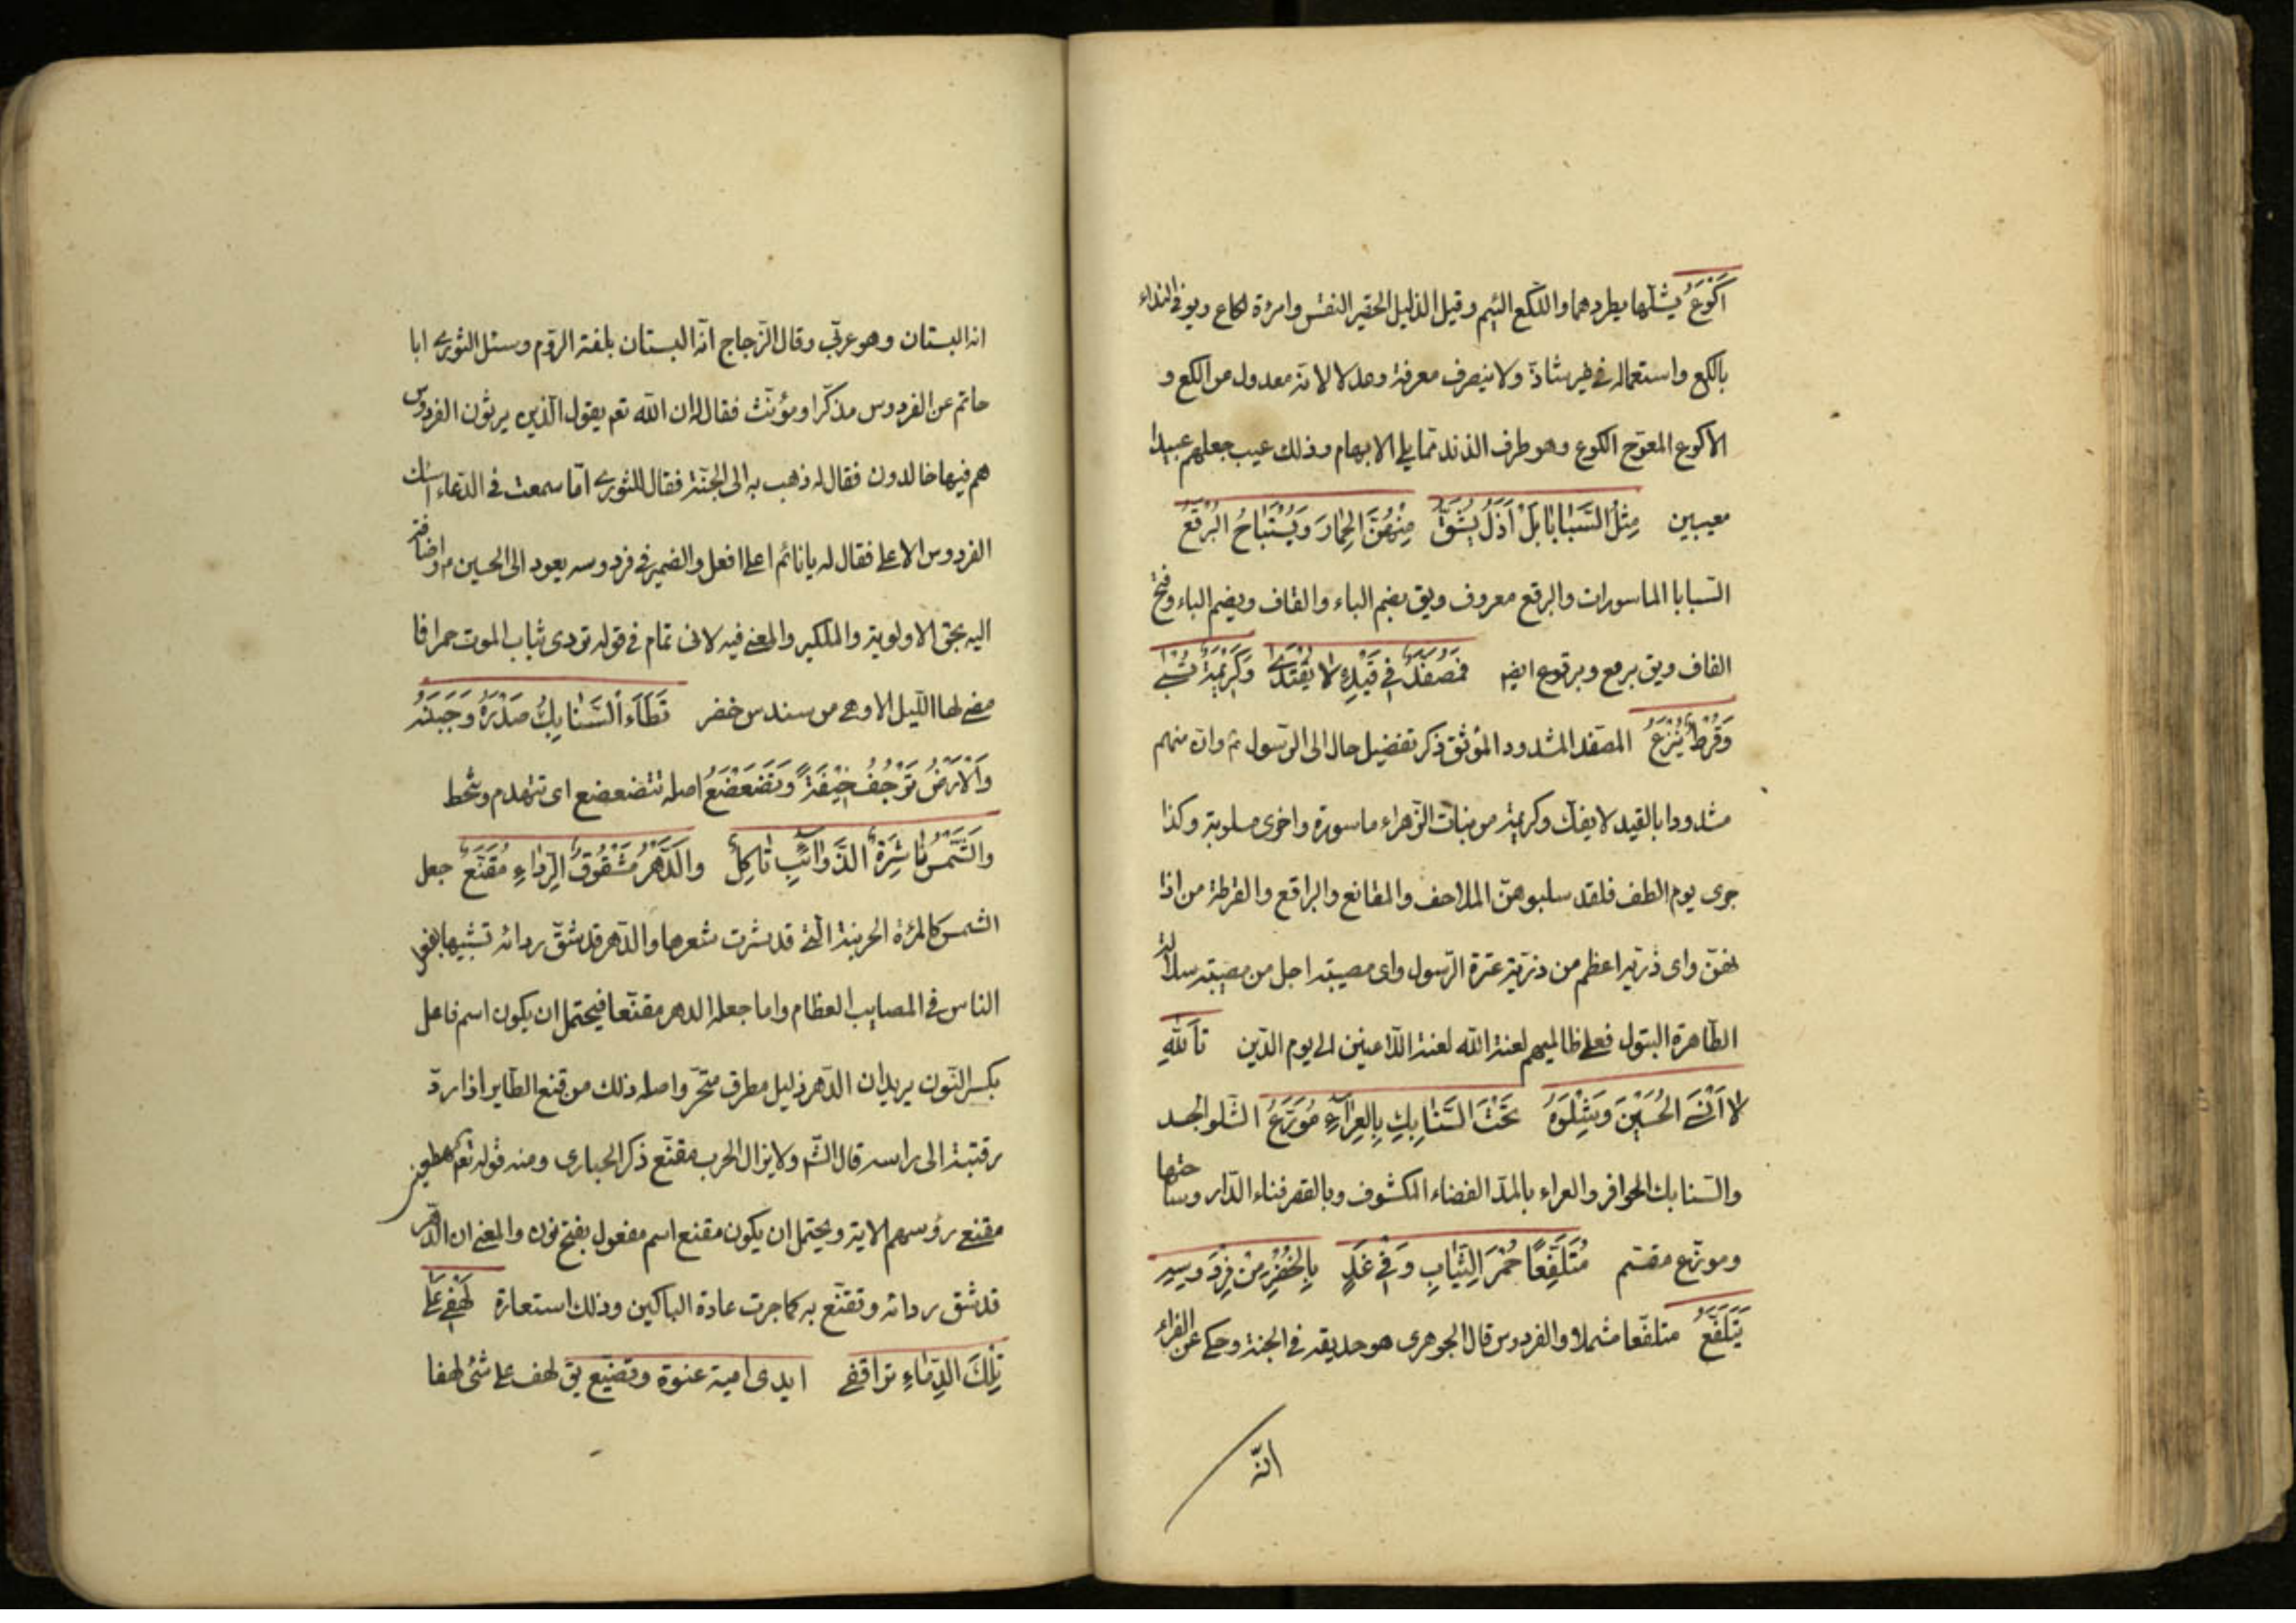 اَكْوَعُ يشلّها يطردهما واللكع اللئيم وقيل الذليل الحقير النفس وامرءة لكاع ويق في النداء
بالكع واستعماله في غير شاذّ ولا ينصرف معرفة وعدلا لانه معدول من الكع و
الاكوع المعوّج الكوع وهو طرف الذند ممّا يلي الابهام وذلك عيب جعلهم عبيدا
معيبين مِثْلُ السَّبايا بَلْ اَذَلُّ يُشَقُّ مِنْهُنَّ الخِمارَ وَيُسْتَباحُ البُرْقَعُ
السّبايا الماسورات والبرقع معروف ويق بضم الباء والقاف وبضم الباء وفتح
القاف ويق برقع وبرقوع ايضا فَمُصَفَّدٌ في قَيْدِهِ لا يُفْتَدىٰ وَكَرِيْمَةٌ تُسْبىٰ
وَقُرْطٌ يُنْزَعُ المصفد المشدود الموثق ذكر تفضيل حال ال الرسول م وان منهم
مشدودا بالقيد لا يفك وكريمة من بنات الزهراء ماسورة واخرى مسلوبة وكذا
جرى يوم الطف فلقد سلبوهنّ الملاحف والمقانع والبراقع والقرطة من اذا
نهنّ واى ذرية اعظم من ذرّية عترة الرّسول واى مصيبة اجل من مصيبة سلالة
الطّاهرة البتول فعلى ظالميهم لعنة الله لعنة اللاعنين الى يوم الدّين تَاللهِ
لا اَنْسَى الحُسَيْنَ وَشِلْوَهُ تَحْتَ السَّنابِكِ بِالعِراءِ مُوَزَّعُ الشّلو الجسد
والسّنابك الحوافر والعراء بالمدّ الفضاء المكشوف وبالقصر فناء الدّار وساحتها
وموزّع مقسّم مُتَلَفِّعًا حُمْرَ الثِّيابِ وَفي غَدٍ بِالخُضْرِ مِنْ فِرْدَوسِهِ
يَتَلَفَّعُ متلفّعا مشملا والفردوس قال الجوهرى هو حديقة في الجنة وحكى عن الفراء
انّه
انه البستان وهو عربّي وقال الزّجاج انّه البستان بلغة الرّوم وسئل الثورى ابا
حاتم عن الفردوس مذكّرا ومؤنّث فقال له ان الله تعم يقول الّذين يرثون الفردوس
هم فيها خالدون فقال له ذهب به الى الجنّة فقال للثورى امّا سمعت في الدّعاء اسئلك
الفردوس الاعلى فقال له يا نائم اعلى افعل والضمير في فردوسه يعود الى الحسين م واضافته
اليه بحق الاولوية والملكية والمعنى فيه لابى تمام في قوله تردى ثياب الموت حمرا فا
مضى لها الليل الا وهى من سندس خضر تَطَاءُ السَّنابِكُ صَدْرَهُ وَجَبِيْنَهُ
وَالْاَرْضُ تَرْجُفُ خِيْفَةً وَتَضَعْضَعُ اصله تتضعضع اى تتهدم وتنحط
والشَّمْسُ ناشِرَةُ الذَّوائِبِ ثاكِلٌ والدَّهْرُ مَشْقُوقُ الرِّداءِ مُقَنَّعٌ جعل
الشمس كالمرءة الحزينة الّتى قد نشرت شعرها والدّهر قد شقّ ردائه تشبيها بفعل
الناس في المصايب العظام واما جعله الدهر مقنّعا فيحتمل ان يكون اسم فاعل
بكسر النّون يريد ان الدّهر ذليل مطرق متحيّر واصله ذلك من قنع الطّاير اذا ردّ
رقبته الى راسه قال الشّ ولا يزال الحرب مقنّع ذكر الحبارى ومنه قوله تعم مهطعين
مقنعى رؤسهم الاية ويحتمل ان يكون مقنع اسم مفعول بفتح نون والمعنى ان الدّهر
قد شق ردائه وتقنّع به كما جرت عادة الباكين وذلك استعارة لَهْفى عَلىٰ
تِلْكَ الدِّماءِ تراق في ايدى امية عنوة وتضيّع يق لهف على شئ لهفا